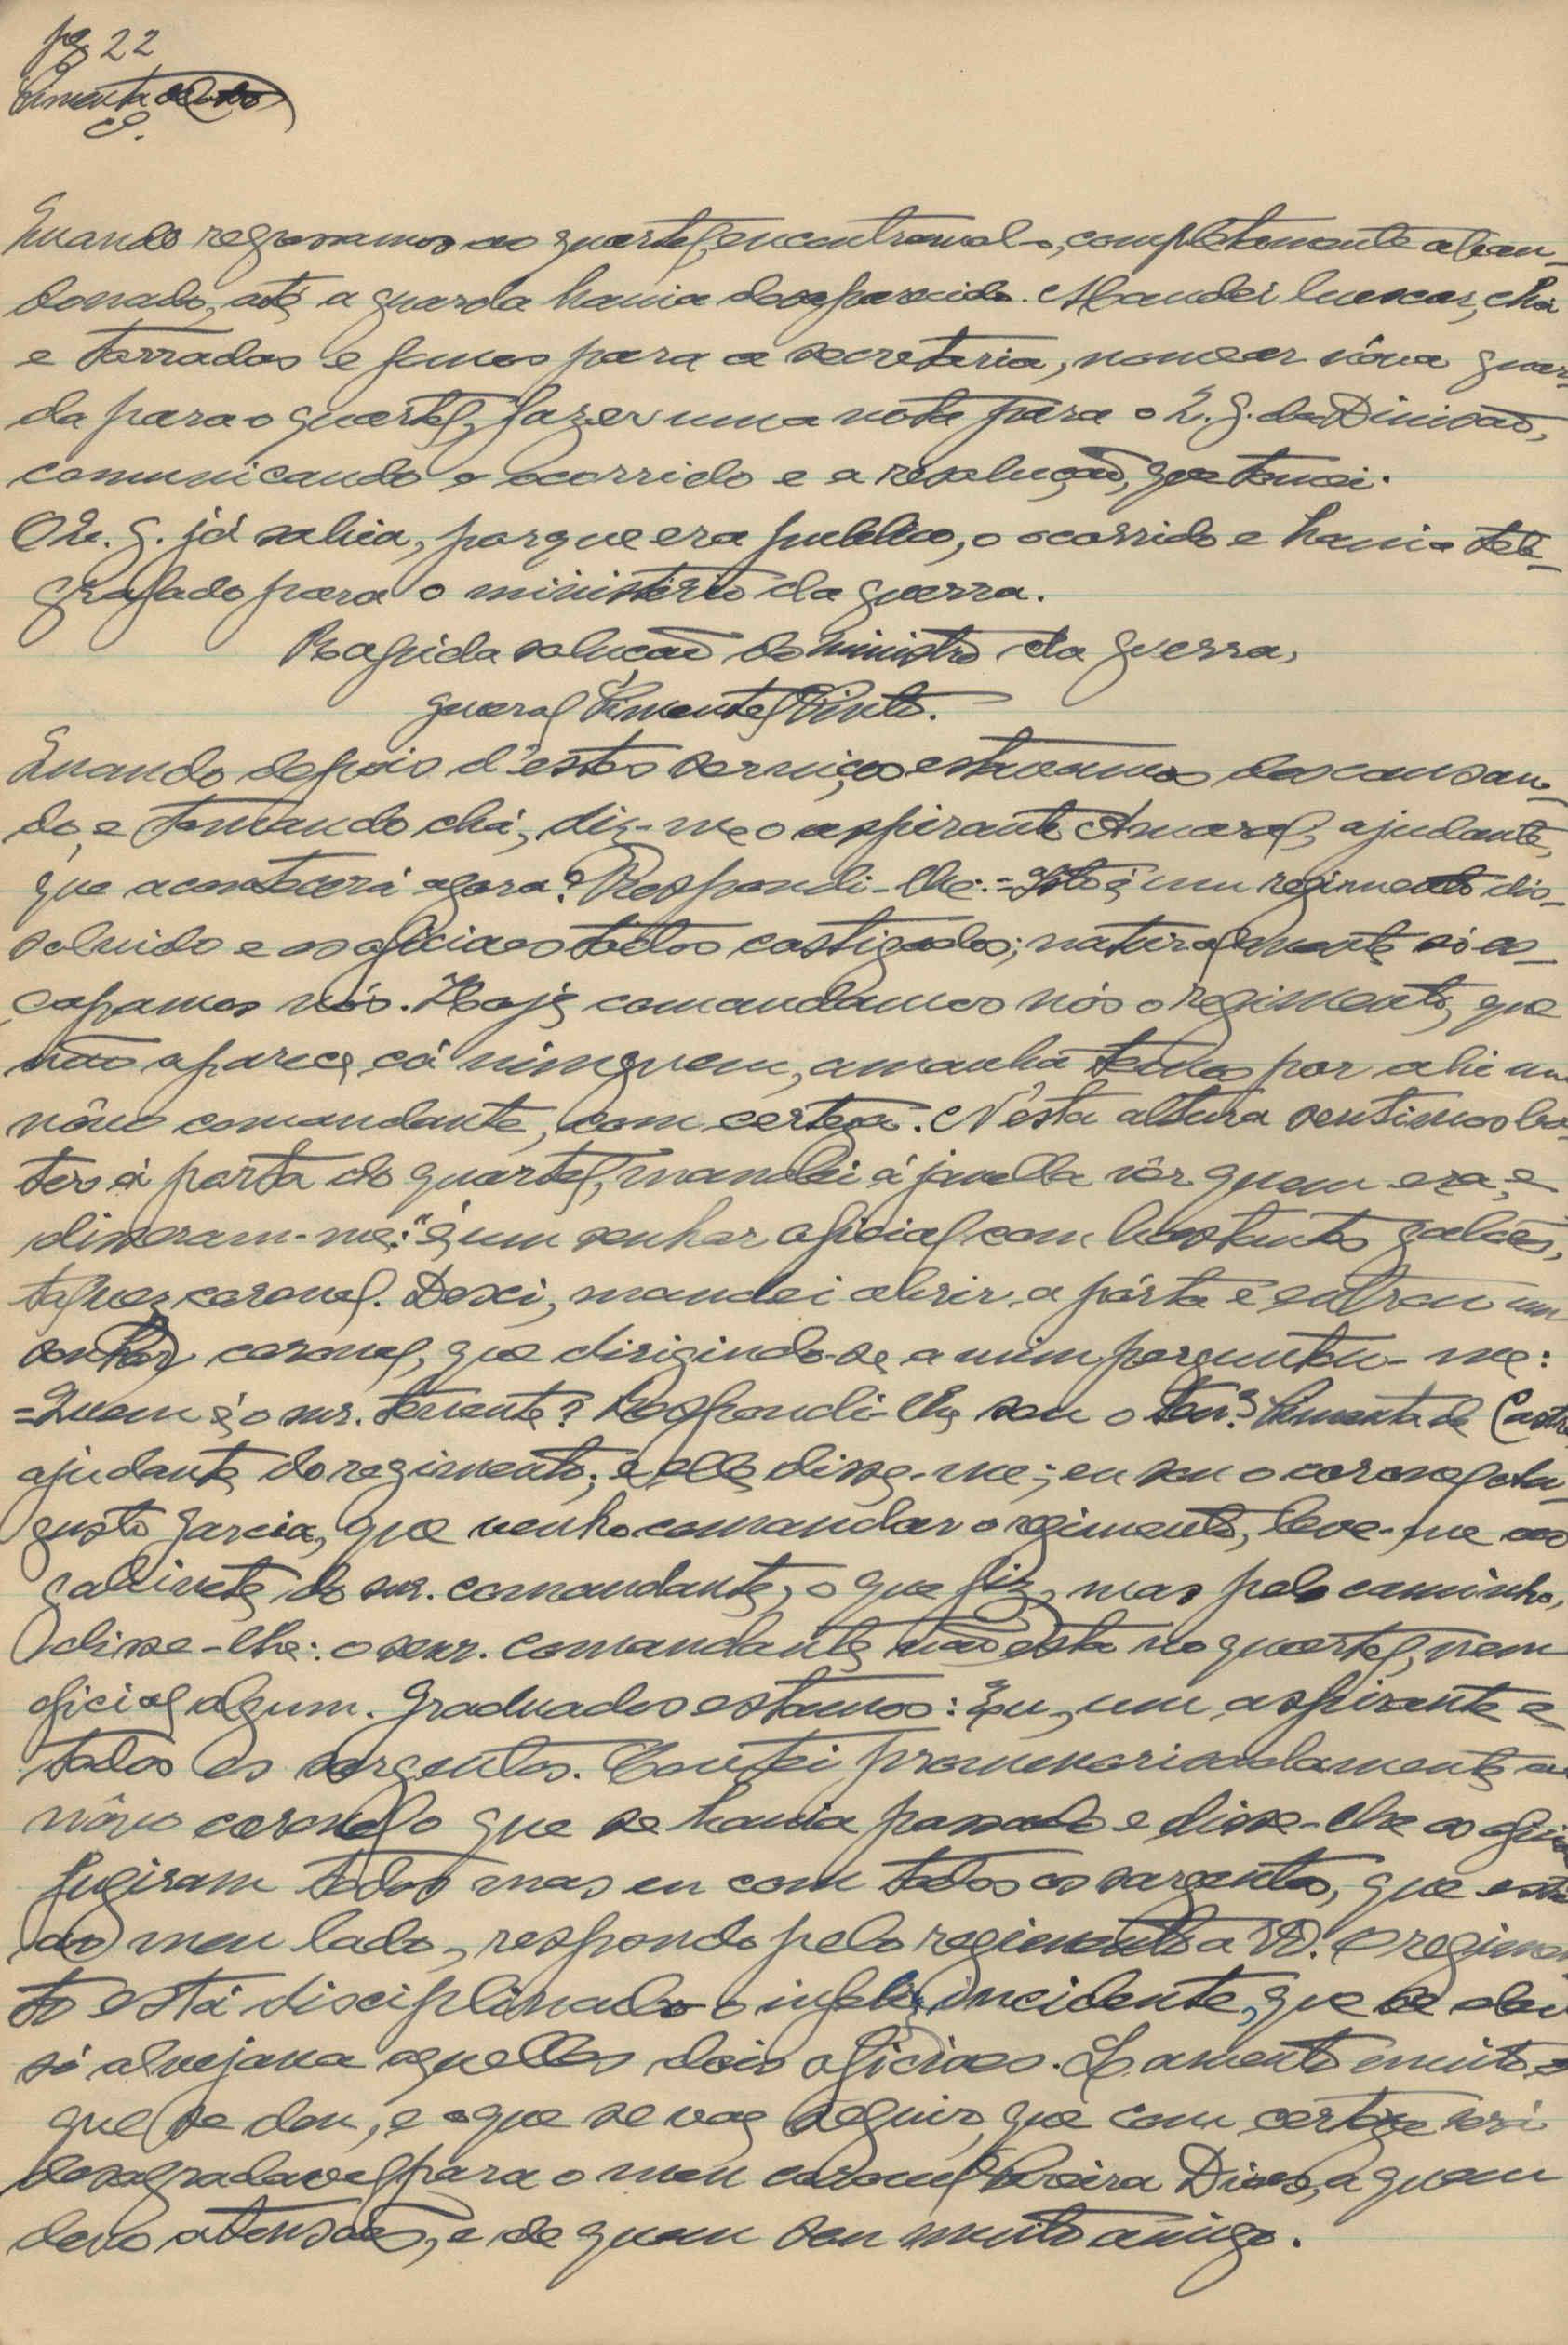 pg. 22
Pimenta de Castro
C.
Quando regressamos ao quartel, encontramol-o, completamente aban-
donado, até a guarda havia desaparecido. Mandei buscar, chá
e torradas e fomos para a secretaria, nomear nôva guar-
da para o quartel, fazer uma nota para o Q. G. da Divisão,
comunicando o ocorrido e a resolução, que tomei.
O Q. G. já sabia, porque era publico, o ocorrido e havia tele-
grafado para o ministério da guerra.
Rapida solução do ministro da guerra,
general Pimentel Pinto.
Quando depois d'estes serviços estavamos descansan-
do, e tomando chá, diz-me o aspirante Amaral, ajudante,
que acontecerá agora? Respondi-lhe: = Isto é um regimento dis-
solvido e os oficiaes todos castigados; naturalmente só es-
capamos nós. Hoje comandamos nós o regimento, que
não aparece cá ninguem, amanhã temos por ahi um
nôvo comandante, com certeza. N'esta altura sentimos ba-
ter á porta do quartel, mandei á janella vêr quem era, e
disseram-me: "é um senhor oficial com bastantes galões,
talvez coronel. Desci, mandei abrir a pórta e entrou um
senhor coronel, que dirigindo-se a mim perguntou-me:
= Quem é o snr. tenente? Respondi-lhe sou o ten.e Pimenta de Castro
ajudante do regimento; e elle disse-me; eu sou o coronel Au-
gusto Garcia, que venho comandar o regimento, leve-me ao
gabinete do snr. comandante, o que fiz, mas pelo caminho,
disse-lhe: o senr. comandante não está no quartel, nem
oficial algum. Graduados estamos: Eu, um aspirante e
todos os sargentos. Contei promenorisadamente ao
nôvo coronel o que se havia passado e disse-lhe os oficiaes
fugiram todos mas eu com todos os sargentos, que estão
ao meu lado, respondo pelo regimento a V. O regimen
to está disciplinado o infeliz incidente, que se deu
só alvejava aquelles dois oficiaes. Lamento muito o
que se deu, e o que se vae seguir, que com certeza será
desagradavel para o meu coronel Pereira Dias, a quem
devo atensões, e de quem sou muito amigo.